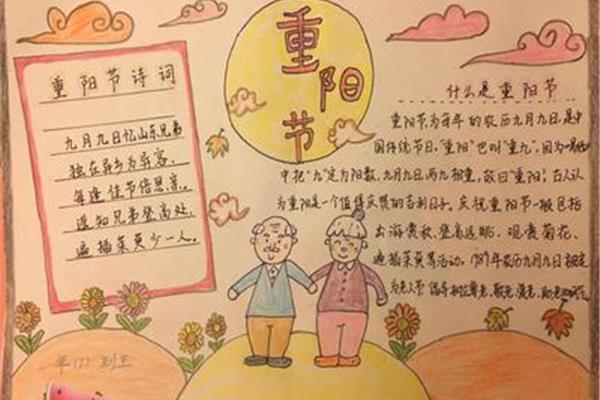 重阳节
重阳节诗词
九月九日忆山东兄弟
独在异乡为异客,
每逢佳节倍思亲。
遥知兄弟登高处,
遍插茱萸少一人。
什么是重阳节
重阳节,为每年的农历九月九日,是中
国传统节日。"重阳"也叫"重九",因为《易经》
中把"九"定为阳数,九月九日,两九相重,故曰"重阳";古人认
为重阳是一个值得庆贺的吉利日子。庆祝重阳节一般包括
出游赏秋、登高远眺、观赏菊花、
遍插茱萸等活动。1989年农历九月九日被定
为老人节,倡导
年(2)班王